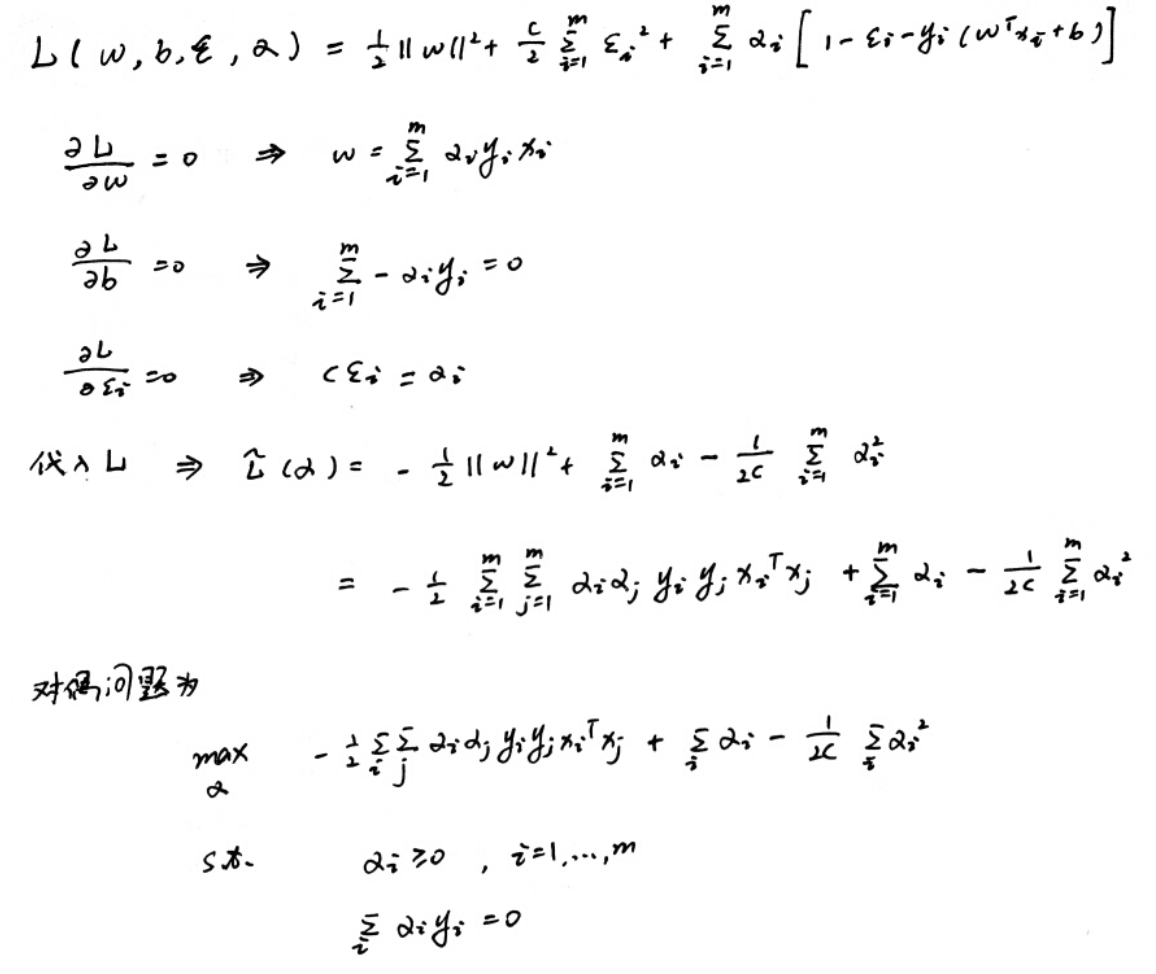 L(w,b,ε,α) = 1/2 ||w||² + C/2 Σ_{i=1}^{m} ε_i² + Σ_{i=1}^{m} α_i [1-ε_i-y_i(w^T x_i+b)]
∂L/∂w = 0 ⇒ w = Σ_{i=1}^{m} α_i y_i x_i
∂L/∂b = 0 ⇒ Σ_{i=1}^{m} - α_i y_i = 0
∂L/∂ε_i = 0 ⇒ Cε_i = α_i
代入L ⇒ L̃(α) = - 1/2 ||w||² + Σ_{i=1}^{m} α_i - 1/2C Σ_{i=1}^{m} α_i²
= - 1/2 Σ_{i=1}^{m} Σ_{j=1}^{m} α_i α_j y_i y_j x_i^T x_j + Σ_{i=1}^{m} α_i - 1/2C Σ_{i=1}^{m} α_i²
对偶问题为
max_α - 1/2 Σ_i Σ_j α_i α_j y_i y_j x_i^T x_j + Σ_i α_i - 1/2C Σ_i α_i²
s.t. α_i ≥ 0 , i=1,...,m
Σ_i α_i y_i = 0